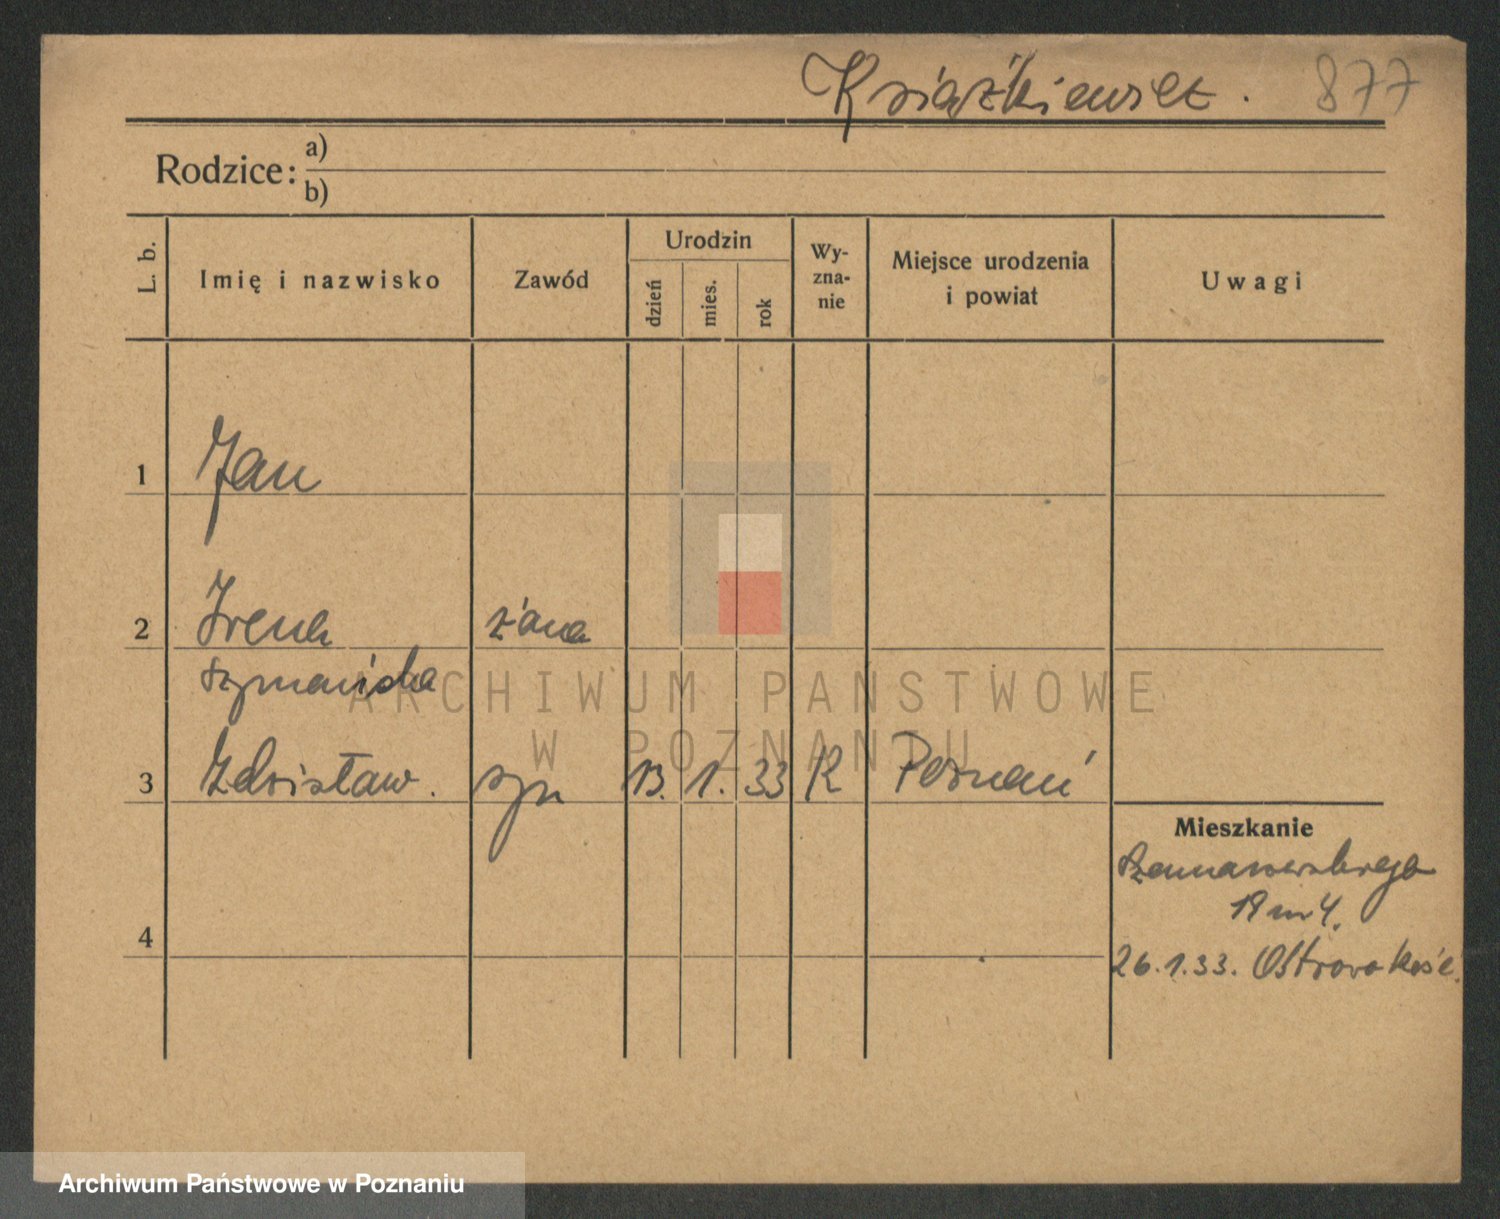 Książkiewicz. 877
Rodzice: a)
b)
L. b.
Imię i nazwisko
Zawód
Urodzin
dzień
mies.
rok
Wy-
zna-
nie
Miejsce urodzenia
i powiat
Uwagi
1 Jan
2 Irena żona
Szymańska
3 Zdzisław. syn 13. 1. 33 K Poznań
4
Mieszkanie
19 m 4.
26.1.33. Ostrowo Kośc.
ARCHIWUM PAŃSTWOWE
W POZNANIU
Archiwum Państwowe w Poznaniu